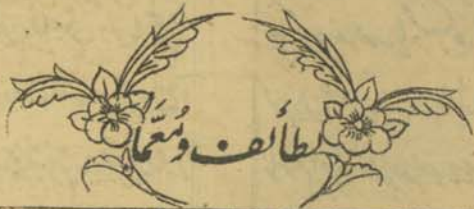 لطائف ومُعَمَّا